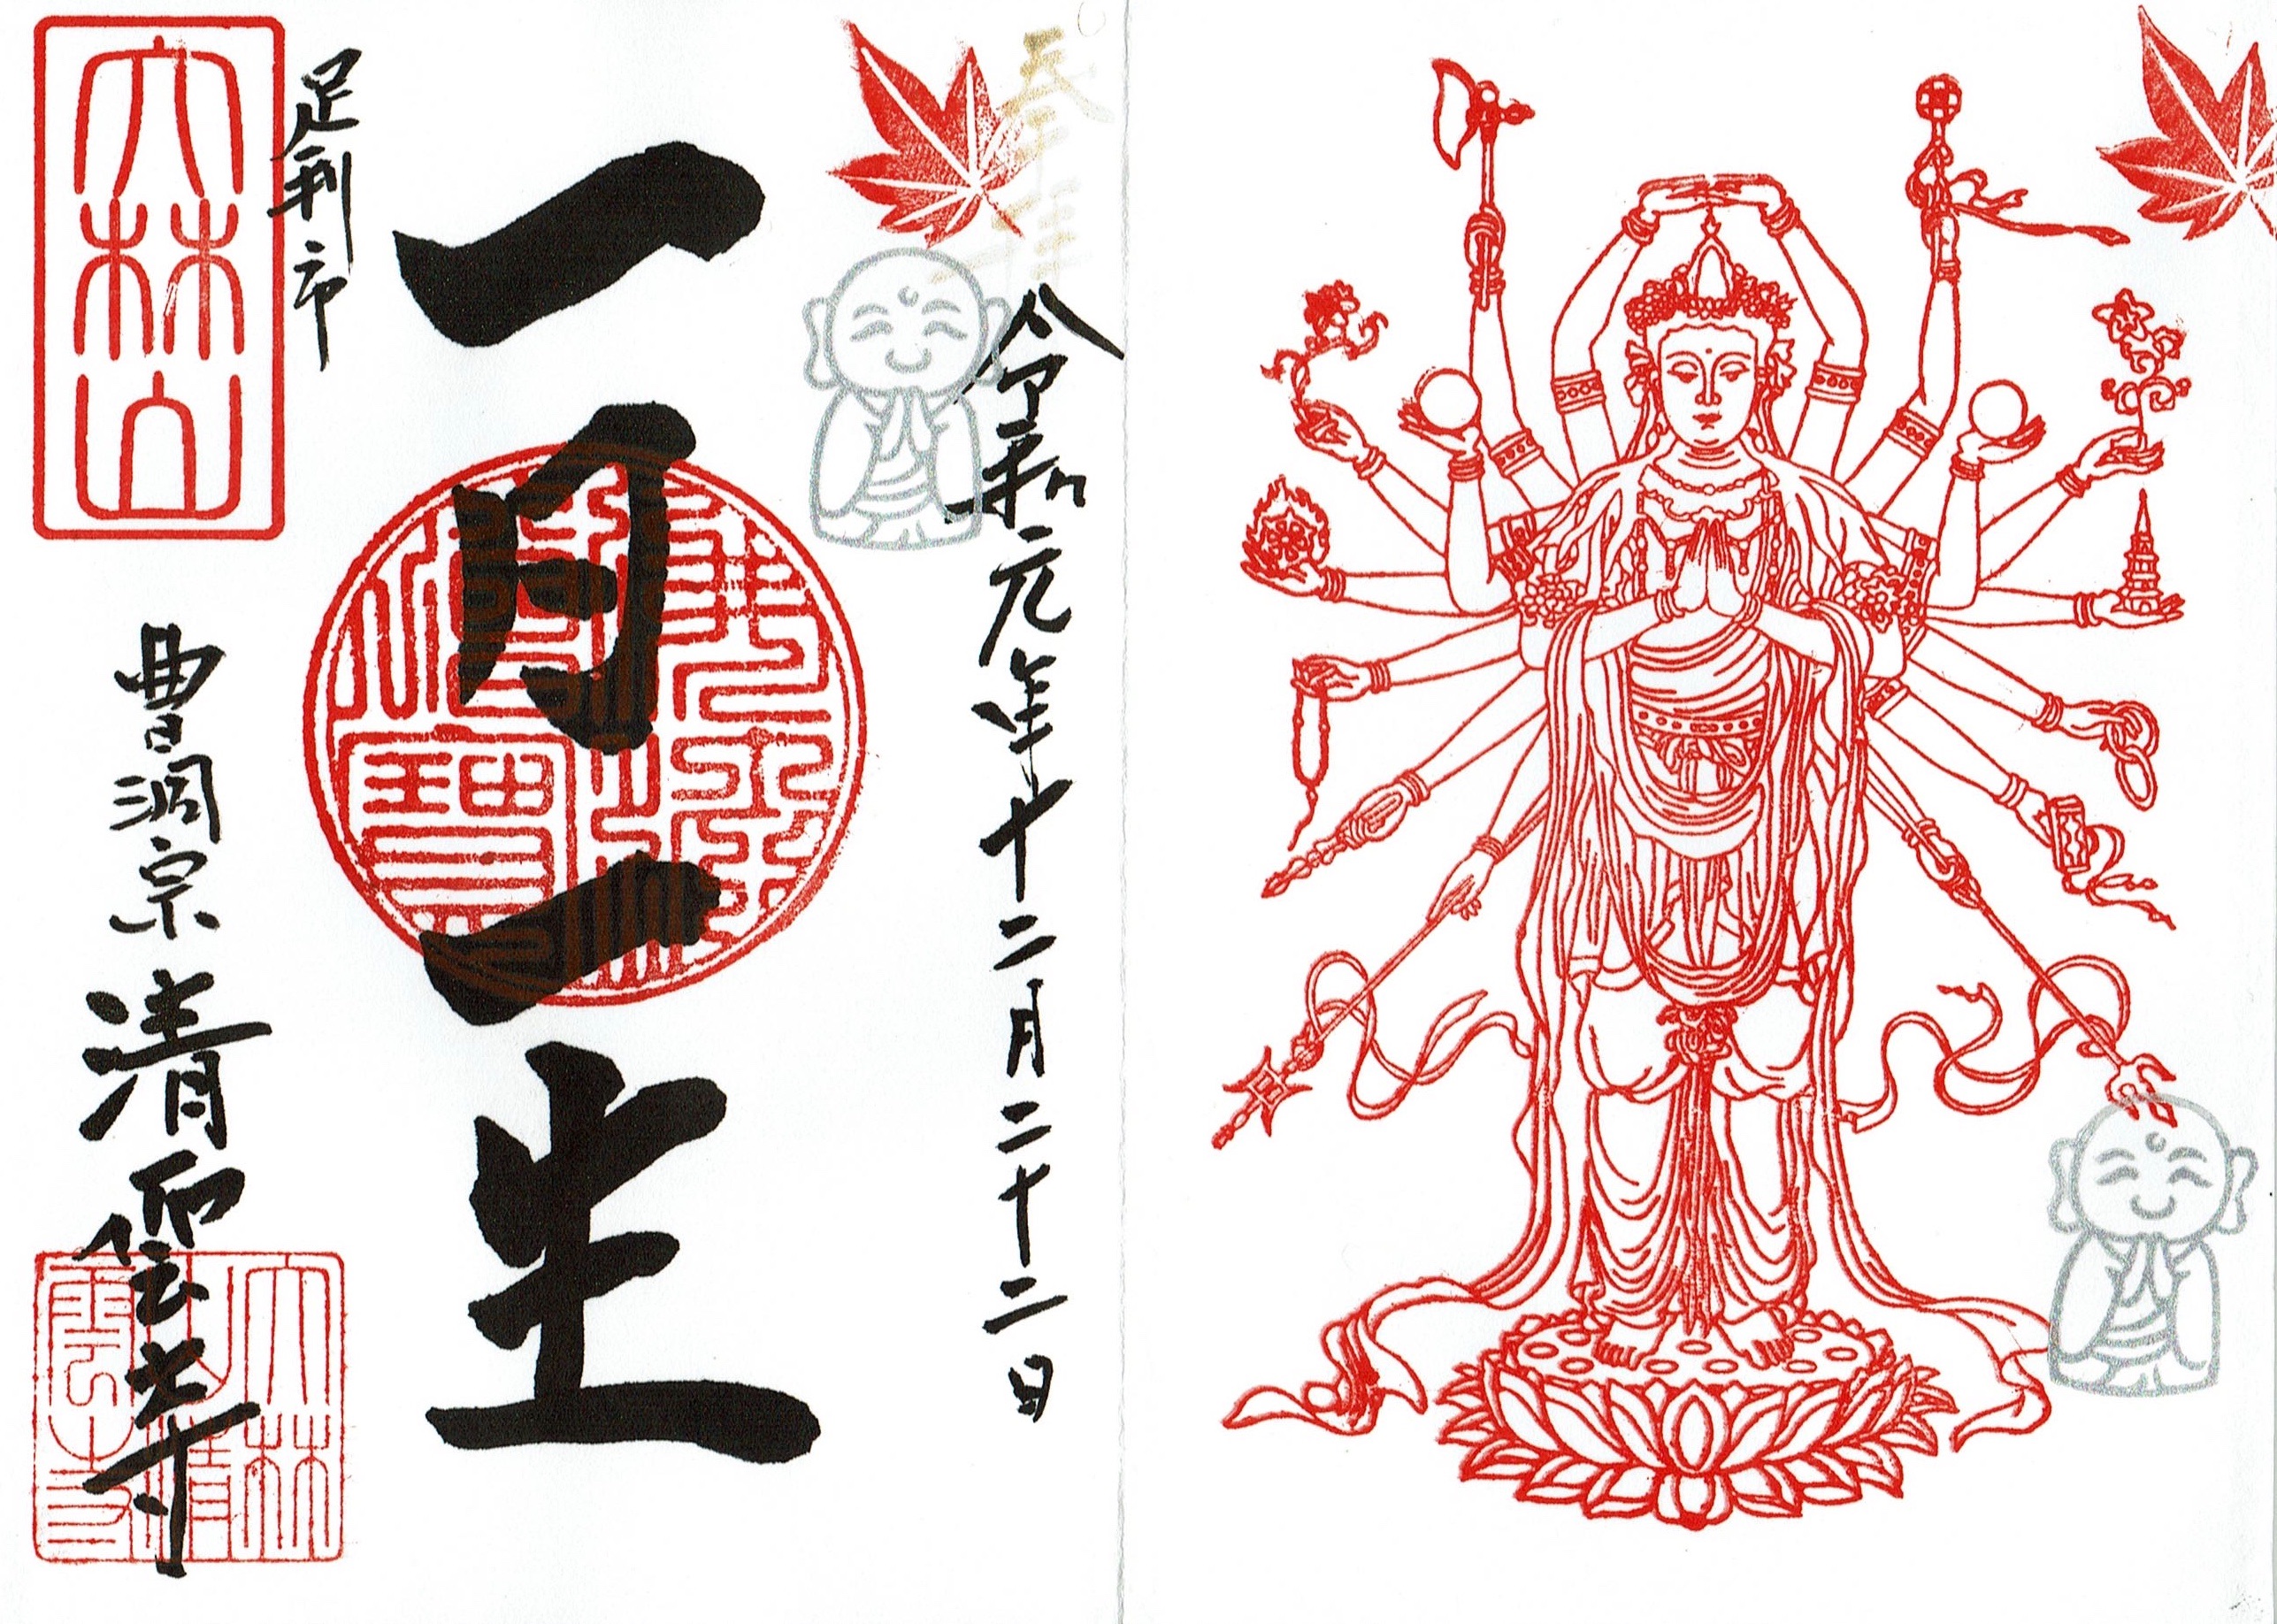 奉拝
令和元年十二月二十二日
一日一生
足利市
大林山
曹洞宗 清雲寺
大林山清雲寺